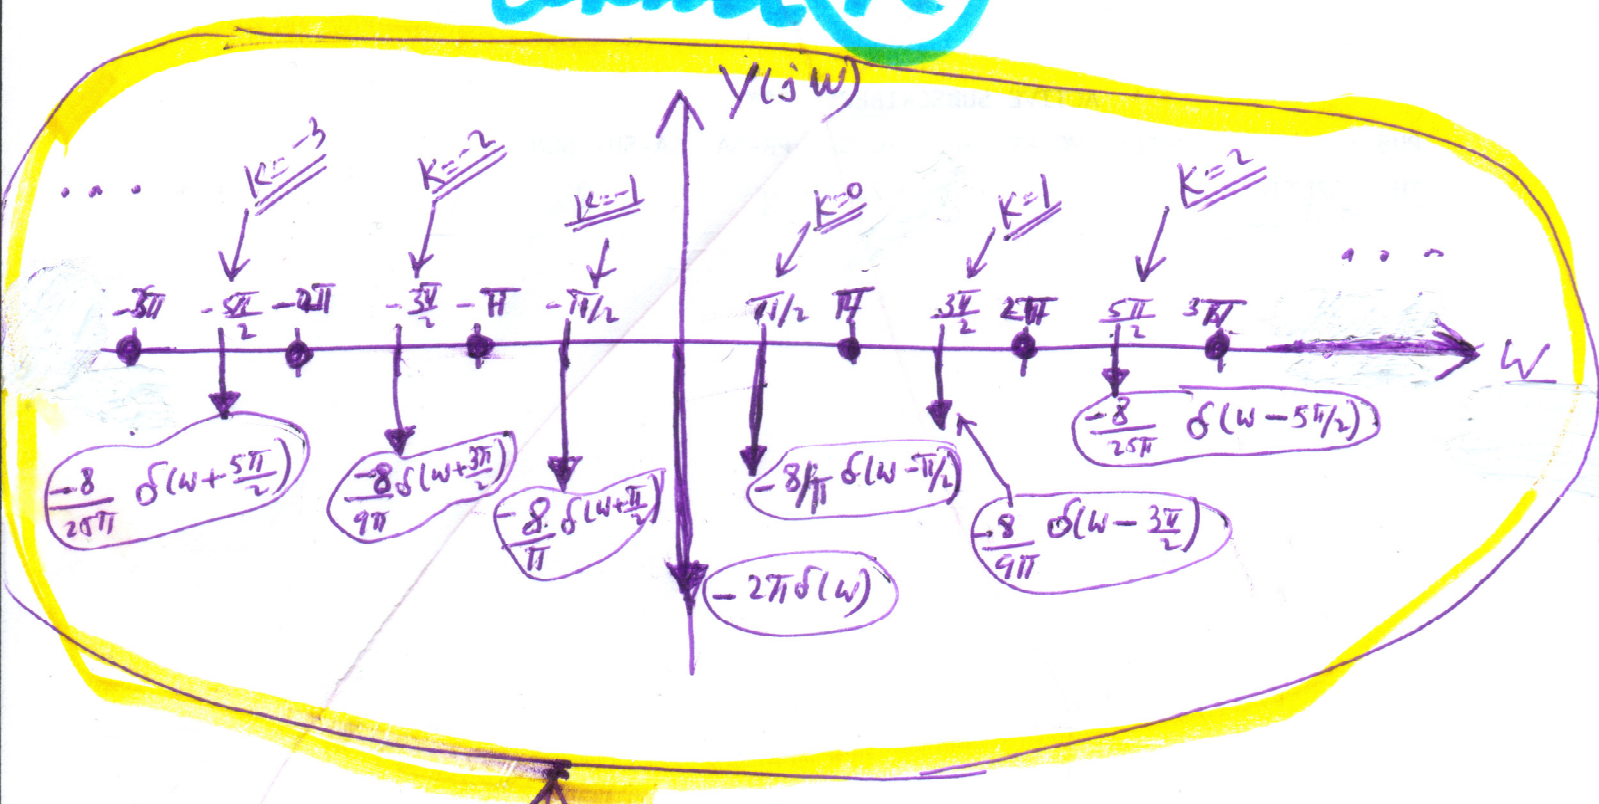 Y(jw)
K=-3 K=-2 K=-1 K=0 K=1 K=2
... ...
-3π -5π/2 -2π -3π/2 -π -π/2 π/2 π 3π/2 2π 5π/2 3π
w
-8/25π δ(w+5π/2) -8/9π δ(w+3π/2) -8/π δ(w+π/2) -8/π δ(w-π/2) -8/9π δ(w-3π/2) -8/25π δ(w-5π/2)
-2πδ(w)